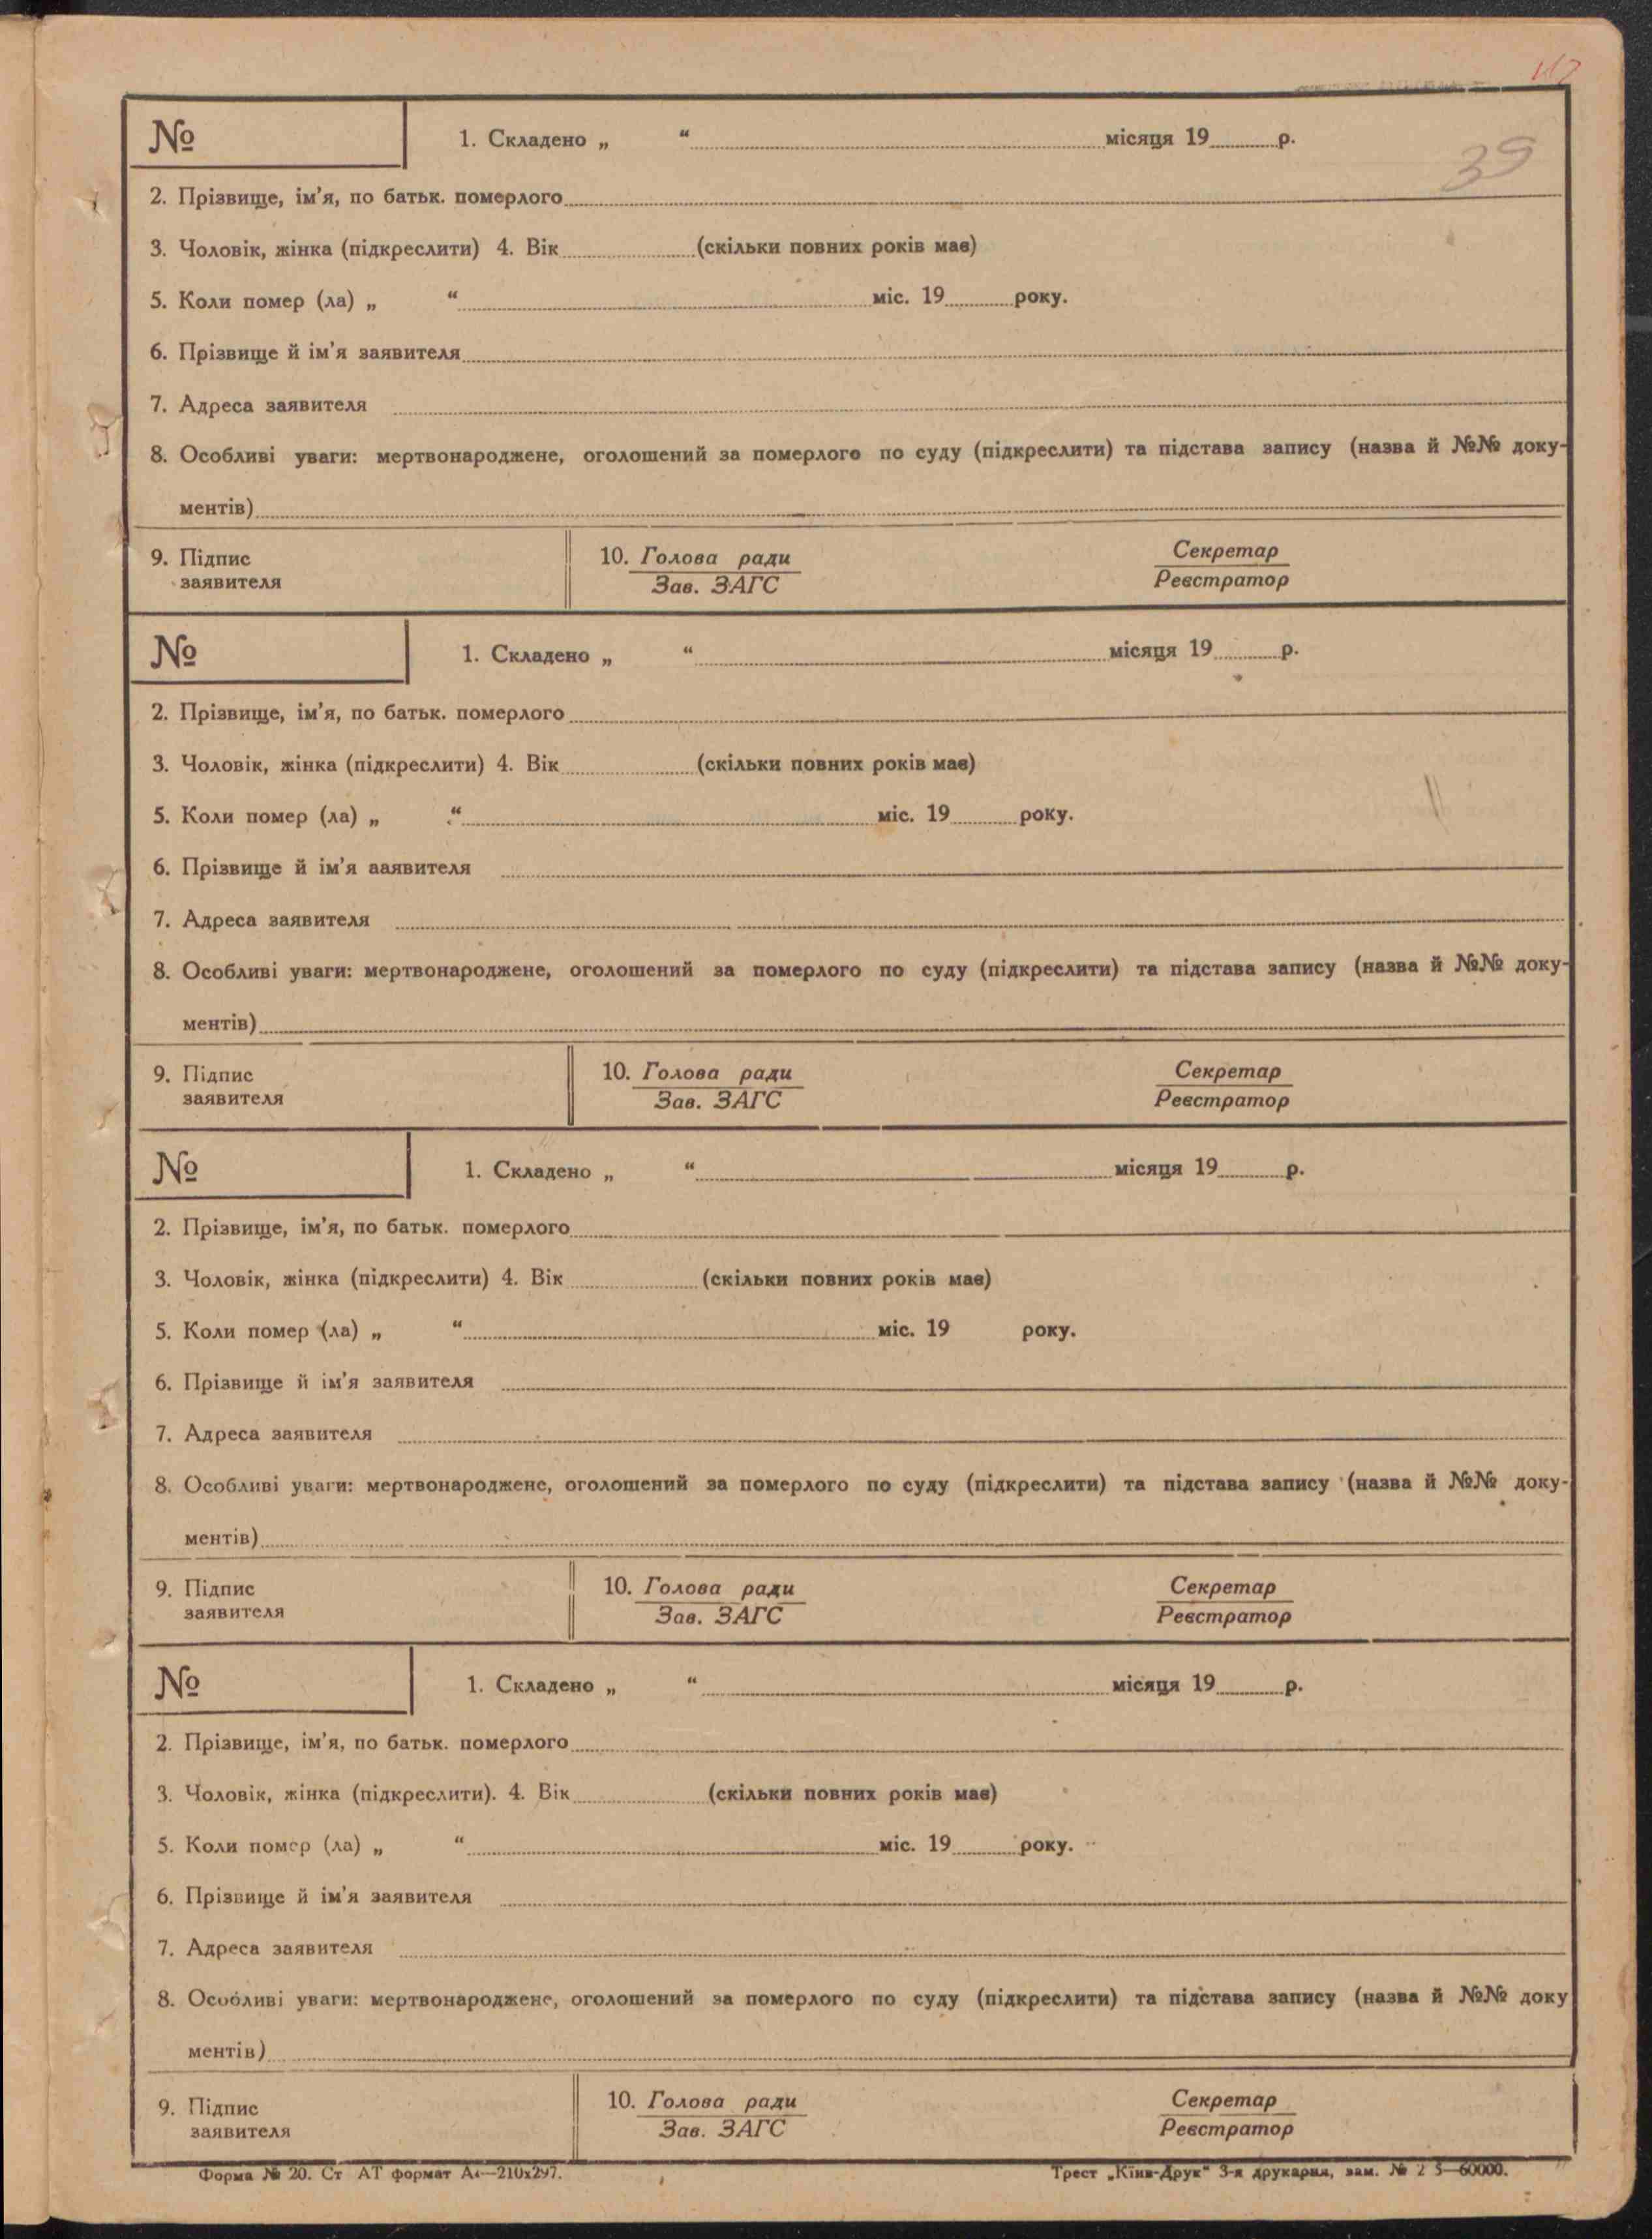 39
№ 1. Складено „ “ місяця 19 р.
2. Прізвище, ім’я, по батьк. померлого
3. Чоловік, жінка (підкреслити) 4. Вік (скільки повних років має)
5. Коли помер (ла) „ “ міс. 19 року.
6. Прізвище й ім’я заявителя
7. Адреса заявителя
8. Особливі уваги: мертвонароджене, оголошений за померлого по суду (підкреслити) та підстава запису (назва й №№ доку-
ментів)
9. Підпис 10. Голова ради Секретар
заявителя Зав. ЗАГС Реєстратор
№ 1. Складено „ “ місяця 19 р.
2. Прізвище, ім’я, по батьк. померлого
3. Чоловік, жінка (підкреслити) 4. Вік (скільки повних років має)
5. Коли помер (ла) „ “ міс. 19 року.
6. Прізвище й ім’я ааявителя
7. Адреса заявителя
8. Особливі уваги: мертвонароджене, оголошений за померлого по суду (підкреслити) та підстава запису (назва й №№ доку-
ментів)
9. Підпис 10. Голова ради Секретар
заявителя Зав. ЗАГС Реєстратор
№ 1. Складено „ “ місяця 19 р.
2. Прізвище, ім’я, по батьк. померлого
3. Чоловік, жінка (підкреслити) 4. Вік (скільки повних років має)
5. Коли помер (ла) „ “ міс. 19 року.
6. Прізвище й ім’я заявителя
7. Адреса заявителя
8. Особливі уваги: мертвонароджене, оголошений за померлого по суду (підкреслити) та підстава запису (назва й №№ доку-
ментів)
9. Підпис 10. Голова ради Секретар
заявителя Зав. ЗАГС Реєстратор
№ 1. Складено „ “ місяця 19 р.
2. Прізвище, ім’я, по батьк. померлого
3. Чоловік, жінка (підкреслити). 4. Вік (скільки повних років має)
5. Коли помер (ла) „ “ міс. 19 року.
6. Прізвище й ім’я заявителя
7. Адреса заявителя
8. Особливі уваги: мертвонароджене, оголошений за померлого по суду (підкреслити) та підстава запису (назва й №№ доку
ментів)
9. Підпис 10. Голова ради Секретар
заявителя Зав. ЗАГС Реєстратор
Форма № 20. Ст АТ формат А4—210х297. Трест „Київ-Друк“ 3-я друкарня, зам. №